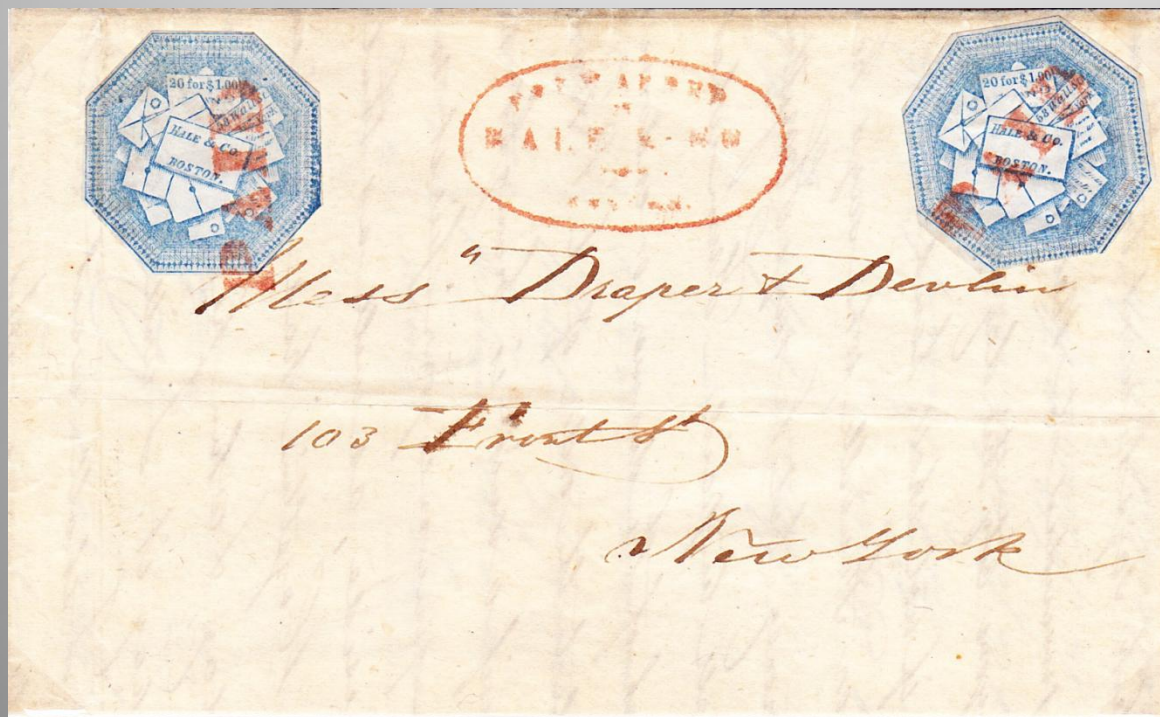 20 for $1.00
HALE & Co.
BOSTON.
FORWARDED
HALE & CO
20 for $1.00
HALE & Co.
BOSTON.
Mess" Draper & Devlin
103 Front St
New York